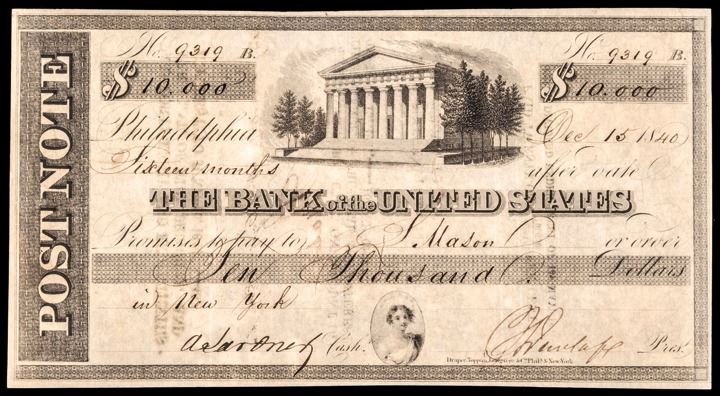 POST NOTE
No. 9319 B. No. 9319 B.
$ 10.000 $ 10.000
Philadelphia Dec 15 1840
Sixteen months after date
THE BANK of the UNITED STATES
Promises to pay to S Mason or order
Ten Thousand Dollars
in New York
Cash. Pres.
Draper, Toppan, Longacre & Co. Phila. & New York